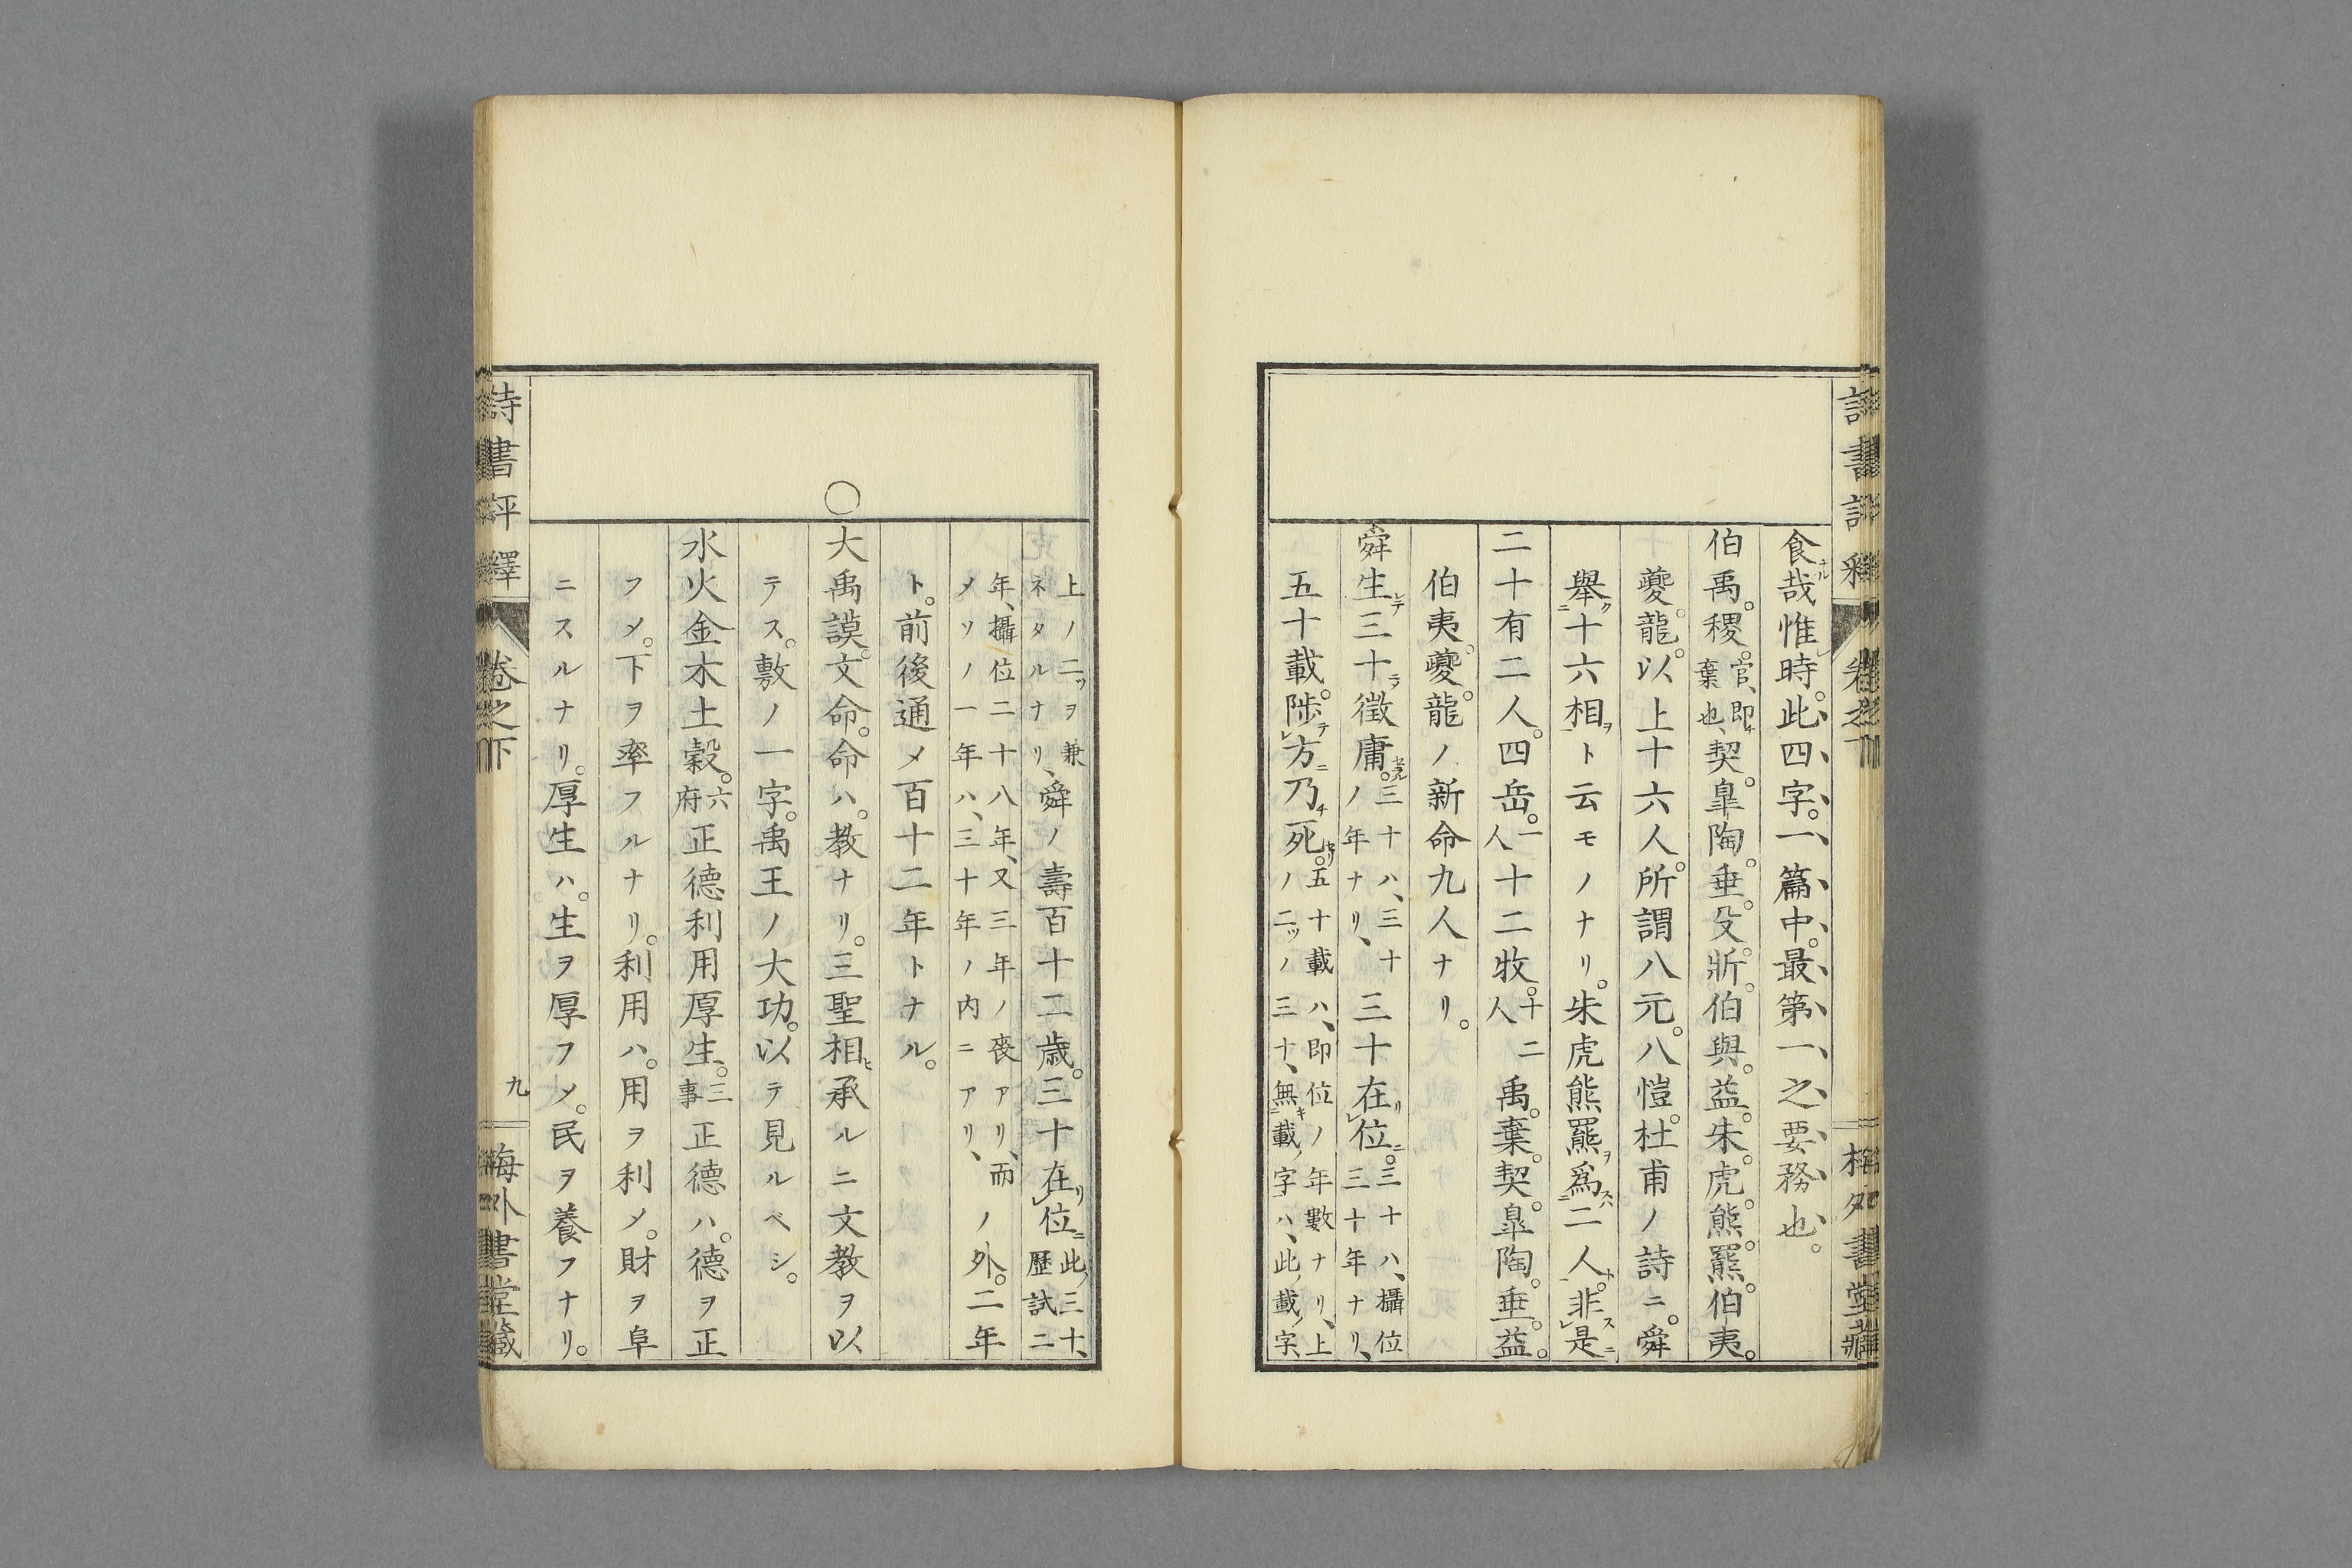 食哉惟時。此四字。一篇中。最第一之要務也。
伯禹。稷。官、即棄也、契。皐陶。垂。殳。斨。伯與。益。朱。虎。熊。羆。伯夷。
夔。龍。以上十六人。所謂八元。八愷。杜甫ノ詩ニ。舜
舉十六相ト云モノナリ。朱虎熊羆爲二人。非是
二十有二人。四岳。一人十二牧。十二人禹。棄。契。皐陶。垂。益。
伯夷。夔。龍ノ新命九人ナリ。
舜生三十徵庸。三十ハ、三十ノ年ナリ、三十在位。三十ハ、攝位三十年ナリ、
五十載。陟方乃死。五十載ハ、即位ノ年數ナリ、上ノ二ツノ三十、無載字ハ、此載字、
上ノ二ヲ兼ネタルナリ、舜ノ壽百十二歳。三十在位此三十、歷試二
年、攝位二十八年、又三年ノ喪アリ、而メソノ一年ハ、三十年ノ内ニアリ、ノ外。二年
ト。前後通メ百十二年トナル。
○
大禹謨。文命。命ハ。教ナリ。三聖相承ルニ文教ヲ以
テス。敷ノ一字。禹王ノ大功。以テ見ルベシ。
水火金木土穀。六府正德利用厚生。三事正德ハ。德ヲ正
フメ。下ヲ率フルナリ。利用ハ。用ヲ利メ。財ヲ阜
ニスルナリ。厚生ハ。生ヲ厚フメ。民ヲ養フナリ。
詩書評釋
卷之下
九
梅外書堂藏